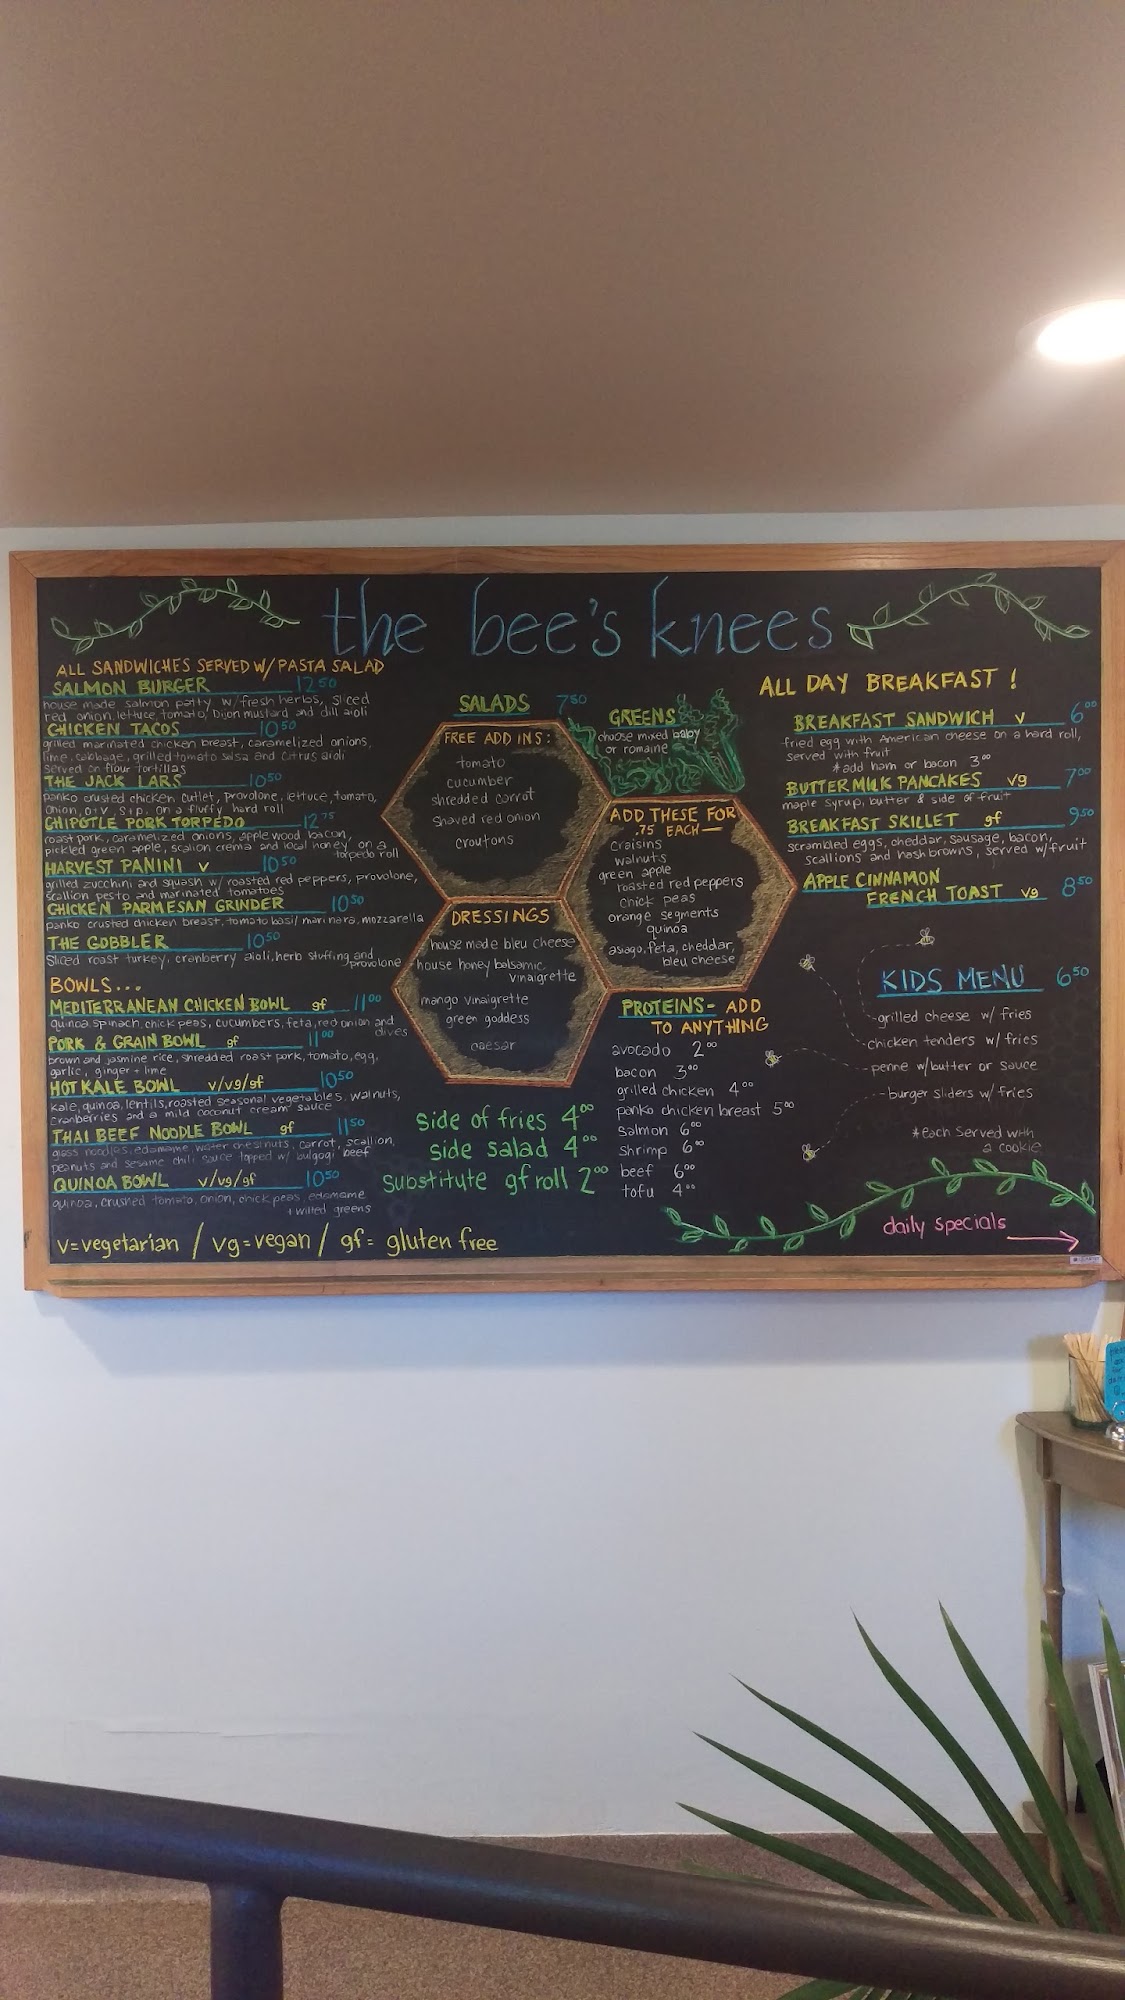 the bee's knees
ALL SANDWICHES SERVED W/ PASTA SALAD
SALMON BURGER 12.50
house made salmon patty w/ fresh herbs, sliced
red onion, lettuce, tomato, Dijon mustard and dill aioli
CHICKEN TACOS 10.50
grilled marinated chicken breast, caramelized onions,
lime, cabbage, grilled tomato salsa and citrus aioli
served on flour tortillas
THE JACK LARS 10.50
panko crusted chicken cutlet, provolone, lettuce, tomato,
onion, o+v, s+p, on a fluffy hard roll
CHIPOTLE PORK TORPEDO 12.75
roast pork, caramelized onions, applewood bacon,
pickled green apple, scallion crema and local honey on a
torpedo roll
HARVEST PANINI V 10.50
grilled zucchini and squash w/ roasted red peppers, provolone,
scallion pesto and marinated tomatoes
CHICKEN PARMESAN GRINDER 10.50
panko crusted chicken breast, tomato basil marinara, mozzarella
THE GOBBLER 10.50
Sliced roast turkey, cranberry aioli, herb stuffing and
provolone
BOWLS...
MEDITERRANEAN CHICKEN BOWL gf 11.00
quinoa, spinach, chick peas, cucumbers, feta, red onion and
olives
PORK & GRAIN BOWL gf 11.00
brown and jasmine rice, shredded roast pork, tomato, egg,
garlic, ginger + lime
HOT KALE BOWL v/vg/gf 10.50
kale, quinoa, lentils, roasted seasonal vegetables, walnuts,
cranberries and a mild coconut cream sauce
THAI BEEF NOODLE BOWL gf 11.50
glass noodles, edamame, water chestnuts, carrot, scallion,
peanuts and sesame chili sauce topped w/ bulgogi beef
QUINOA BOWL v/vg/gf 10.50
quinoa, crushed tomato, onion, chick peas, edamame
+ wilted greens
v=vegetarian / vg=vegan / gf= gluten free
SALADS 7.50
FREE ADD INS:
tomato
cucumber
shredded carrot
shaved red onion
croutons
GREENS
choose mixed baby
or romaine
ADD THESE FOR
.75 EACH—
craisins
walnuts
green apple
roasted red peppers
chick peas
orange segments
quinoa
asiago, feta, cheddar,
bleu cheese
DRESSINGS
house made bleu cheese
house honey balsamic
vinaigrette
mango vinaigrette
green goddess
caesar
side of fries 4.00
side salad 4.00
substitute gf roll 2.00
PROTEINS- ADD
TO ANYTHING
avocado 2.00
bacon 3.00
grilled chicken 4.00
panko chicken breast 5.00
salmon 6.00
shrimp 6.00
beef 6.00
tofu 4.00
ALL DAY BREAKFAST!
BREAKFAST SANDWICH V 6.00
fried egg with American cheese on a hard roll,
served with fruit
*add ham or bacon 3.00
BUTTERMILK PANCAKES vg 7.00
maple syrup, butter & side of fruit
BREAKFAST SKILLET gf 9.50
scrambled eggs, cheddar, sausage, bacon,
scallions and hashbrowns, served w/ fruit
APPLE CINNAMON
FRENCH TOAST vg 8.50
KIDS MENU 6.50
-grilled cheese w/ fries
-chicken tenders w/ fries
-penne w/butter or sauce
-burger sliders w/ fries
*each served with
a cookie
daily specials